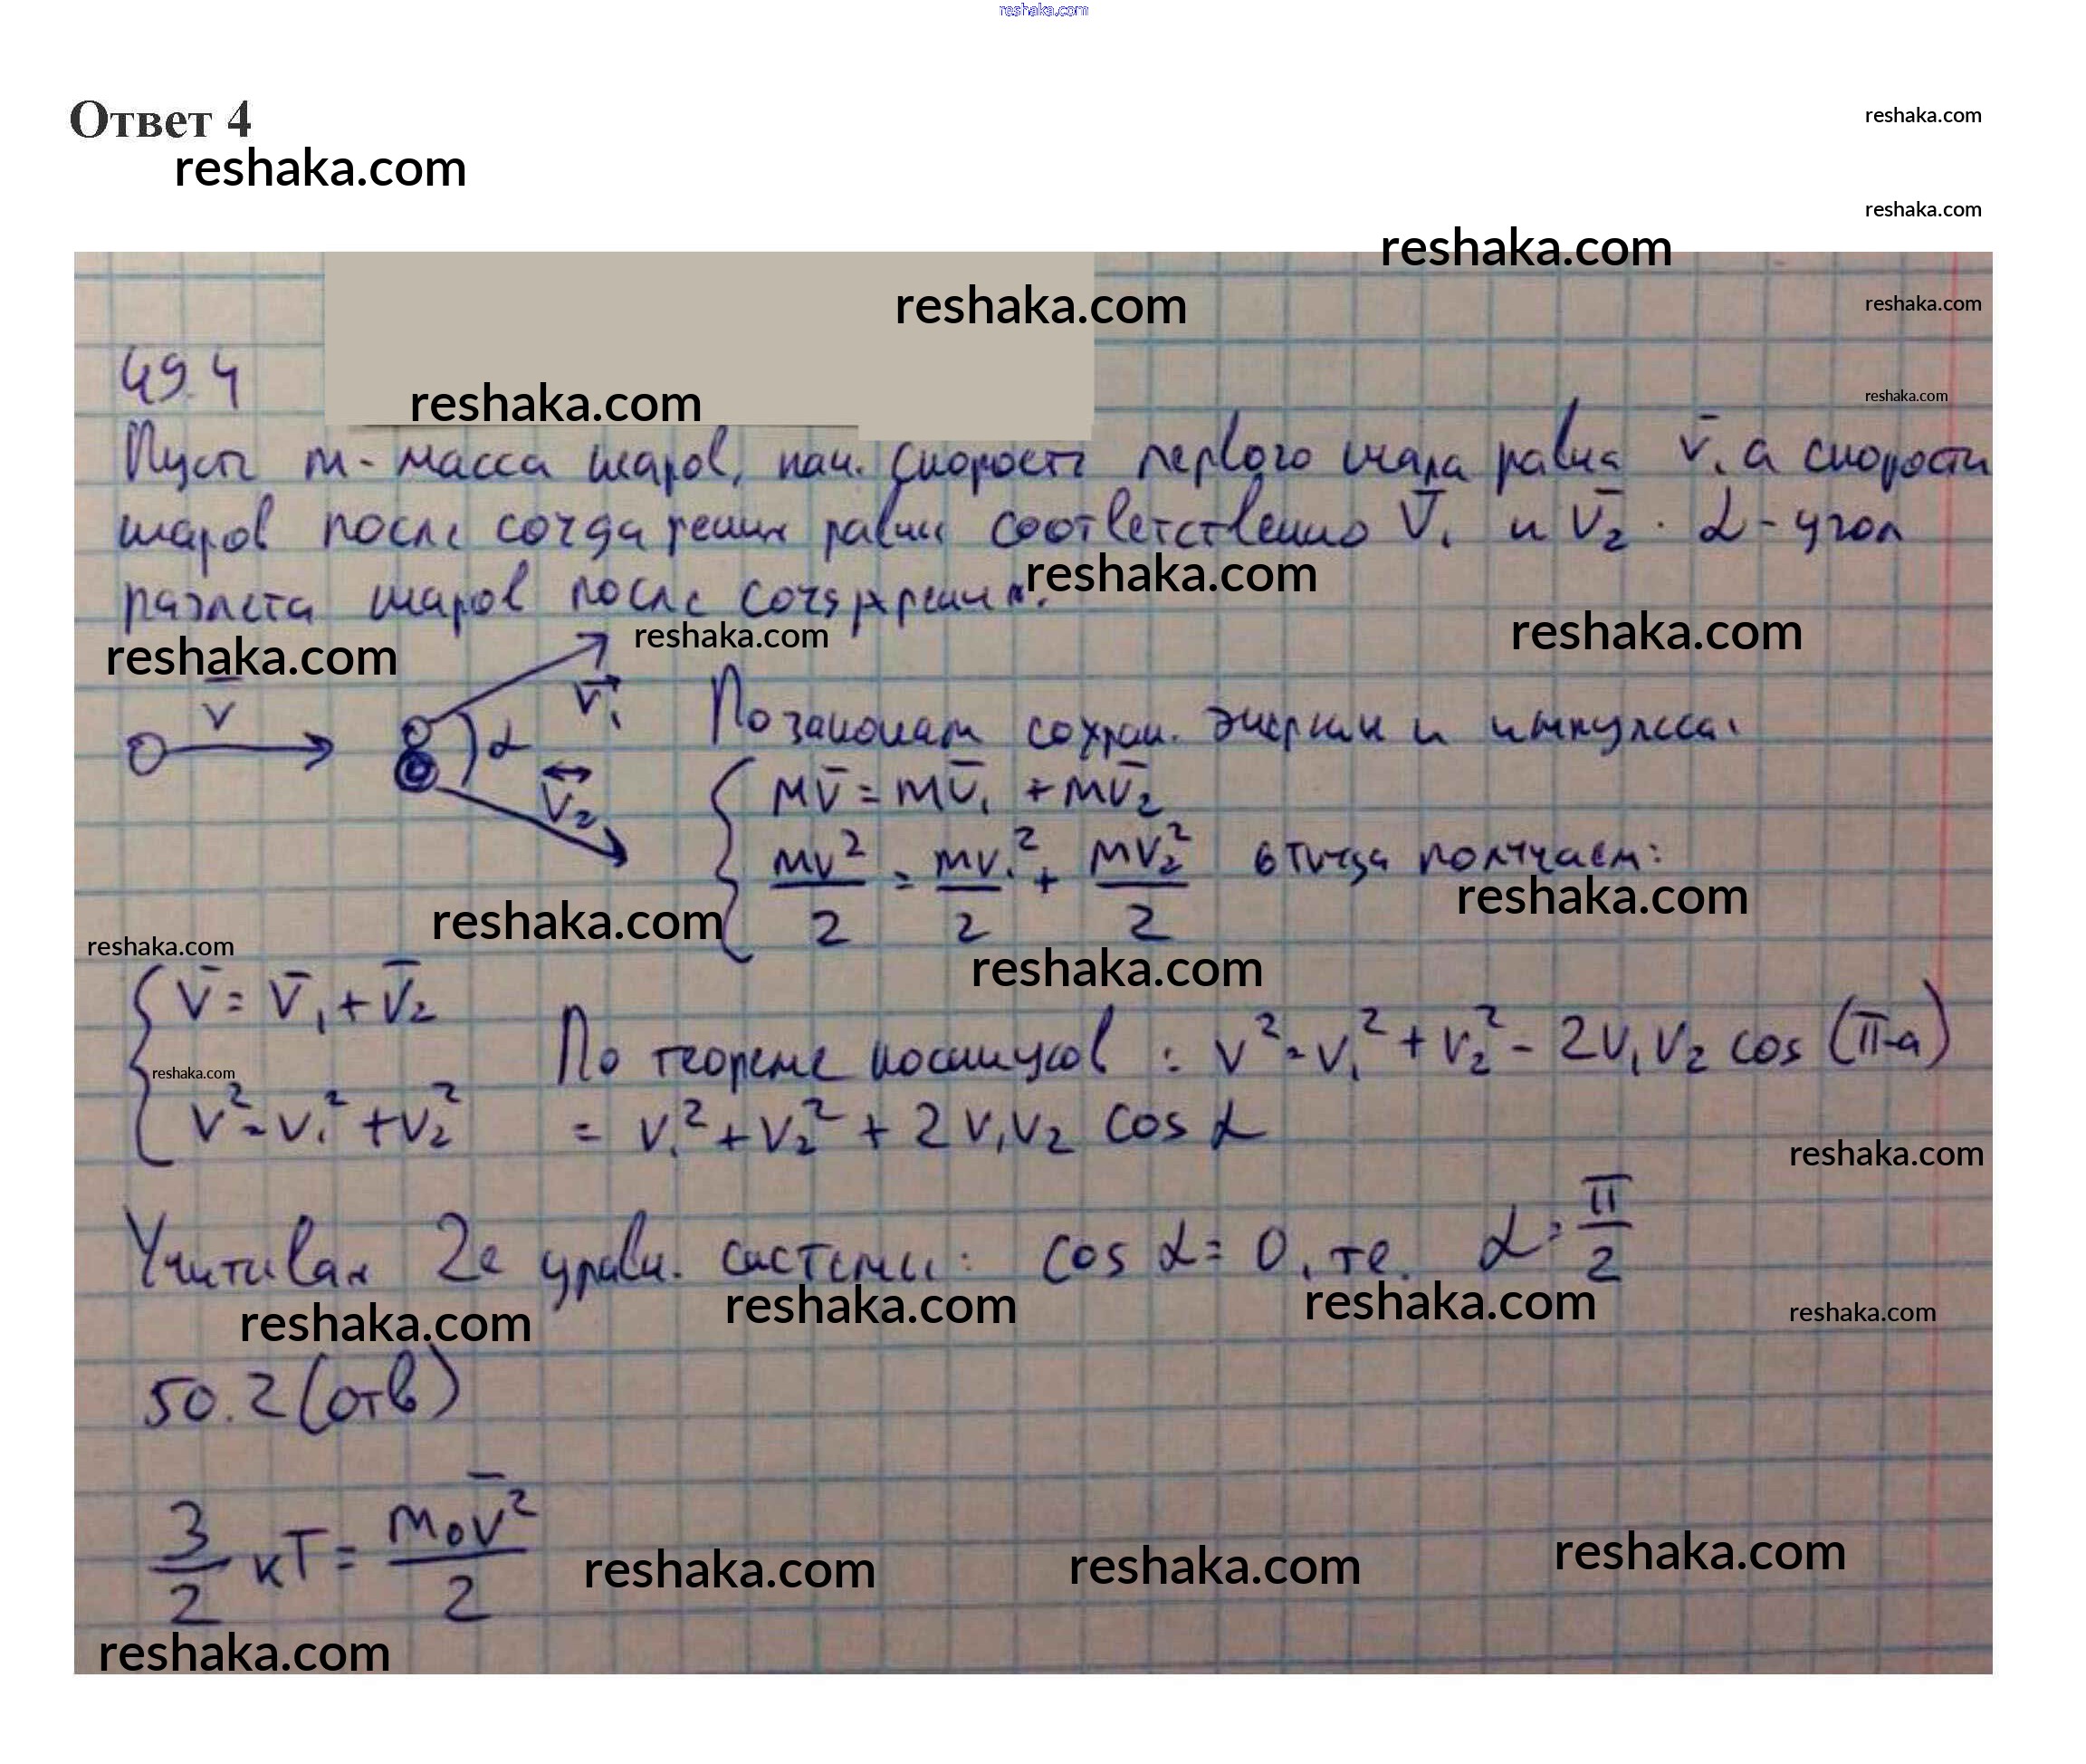 reshaka.com
Ответ 4
reshaka.com
reshaka.com
reshaka.com
reshaka.com
reshaka.com
reshaka.com
49.4
reshaka.com
reshaka.com
Пусть m - масса шаров, нач. скорость первого шара равна v̄, а скорости
шаров после соударения равны соответственно v̄₁ и v̄₂. α - угол
reshaka.com
разлета шаров после соударения.
reshaka.com
reshaka.com
reshaka.com
v̄
v⃗₁
α
v₂
По законам сохран. энергии и импульса:
mv̄ = mv̄₁ + mv̄₂
mv²/2 = mv₁²/2 + mv₂²/2 отсюда получаем:
reshaka.com
reshaka.com
reshaka.com
reshaka.com
v̄ = v̄₁ + v̄₂
По теореме косинусов: v² = v₁² + v₂² - 2v₁v₂ cos (π-a)
reshaka.com
v² = v₁² + v₂²
= v₁² + v₂² + 2v₁v₂ cos α
reshaka.com
Учитывая 2е уравн. системы: cos α = 0, т.е. α = π/2
reshaka.com
reshaka.com
reshaka.com
reshaka.com
50.2 (отв)
3/2 кТ = m₀v̄²/2
reshaka.com
reshaka.com
reshaka.com
reshaka.com